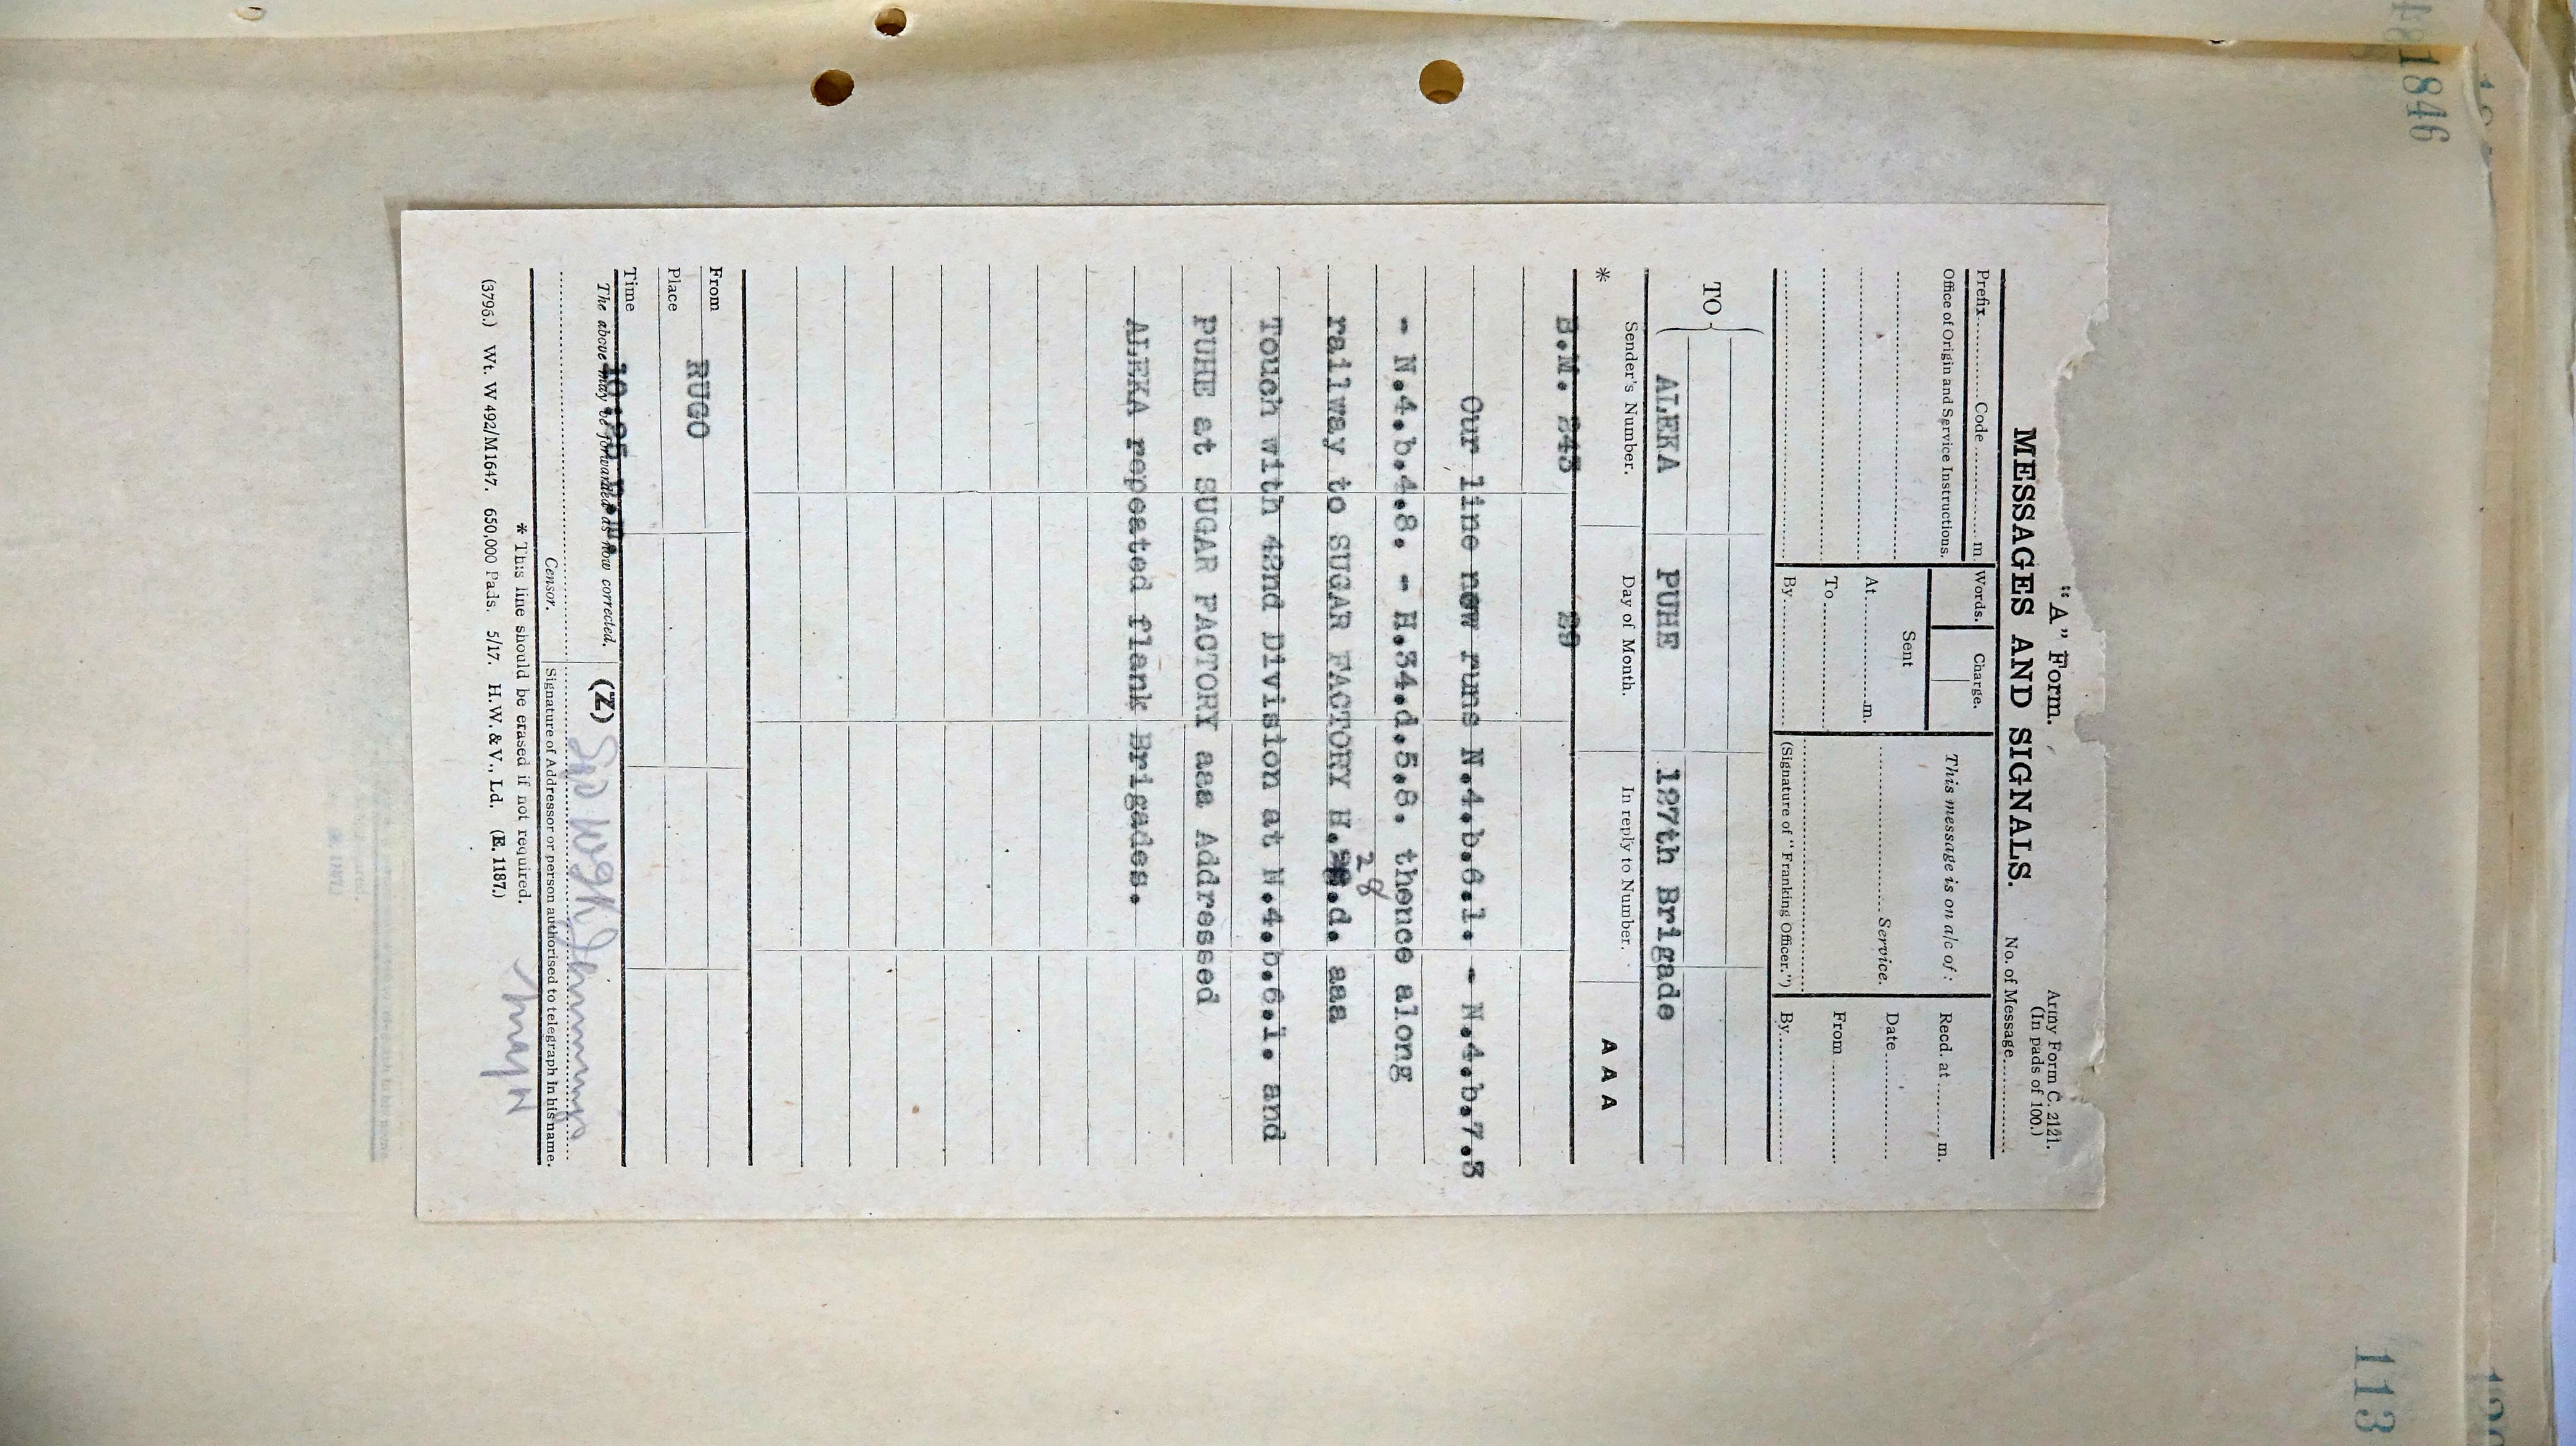 481846
"A" Form.
Army Form C. 2121.
(In pads of 100.)
MESSAGES AND SIGNALS.
No. of Message
Prefix Code m
Words.
Charge.
This message is on a/c of:
Recd. at m.
Office of Origin and Service Instructions.
Sent
At m.
Service.
Date
To
From
By
(Signature of "Franking Officer.")
By
TO
ALEKA PUHE 127th Brigade
* Sender's Number. Day of Month. In reply to Number. A A A
B.M. 243 29
Our line now runs N.4.b.6.1. - N.4.b.7.3
- N.4.b.4.8. - H.34.d.5.8. thence along
28
railway to SUGAR FACTORY H. .d. aaa
Touch with 42nd Division at N.4.b.6.1. and
PUHE at SUGAR FACTORY aaa Addressed
ALEKA repeated flank Brigades.
From RUGO
Place
Time 10.25 p.m.
The above may be forwarded as now corrected. (Z)
Censor. Signature of Addressor or person authorised to telegraph in his name.
* This line should be erased if not required.
(3796.) Wt. W 492/M1647. 650,000 Pads. 5/17. H.W. & V., Ld. (E. 1187.)
113